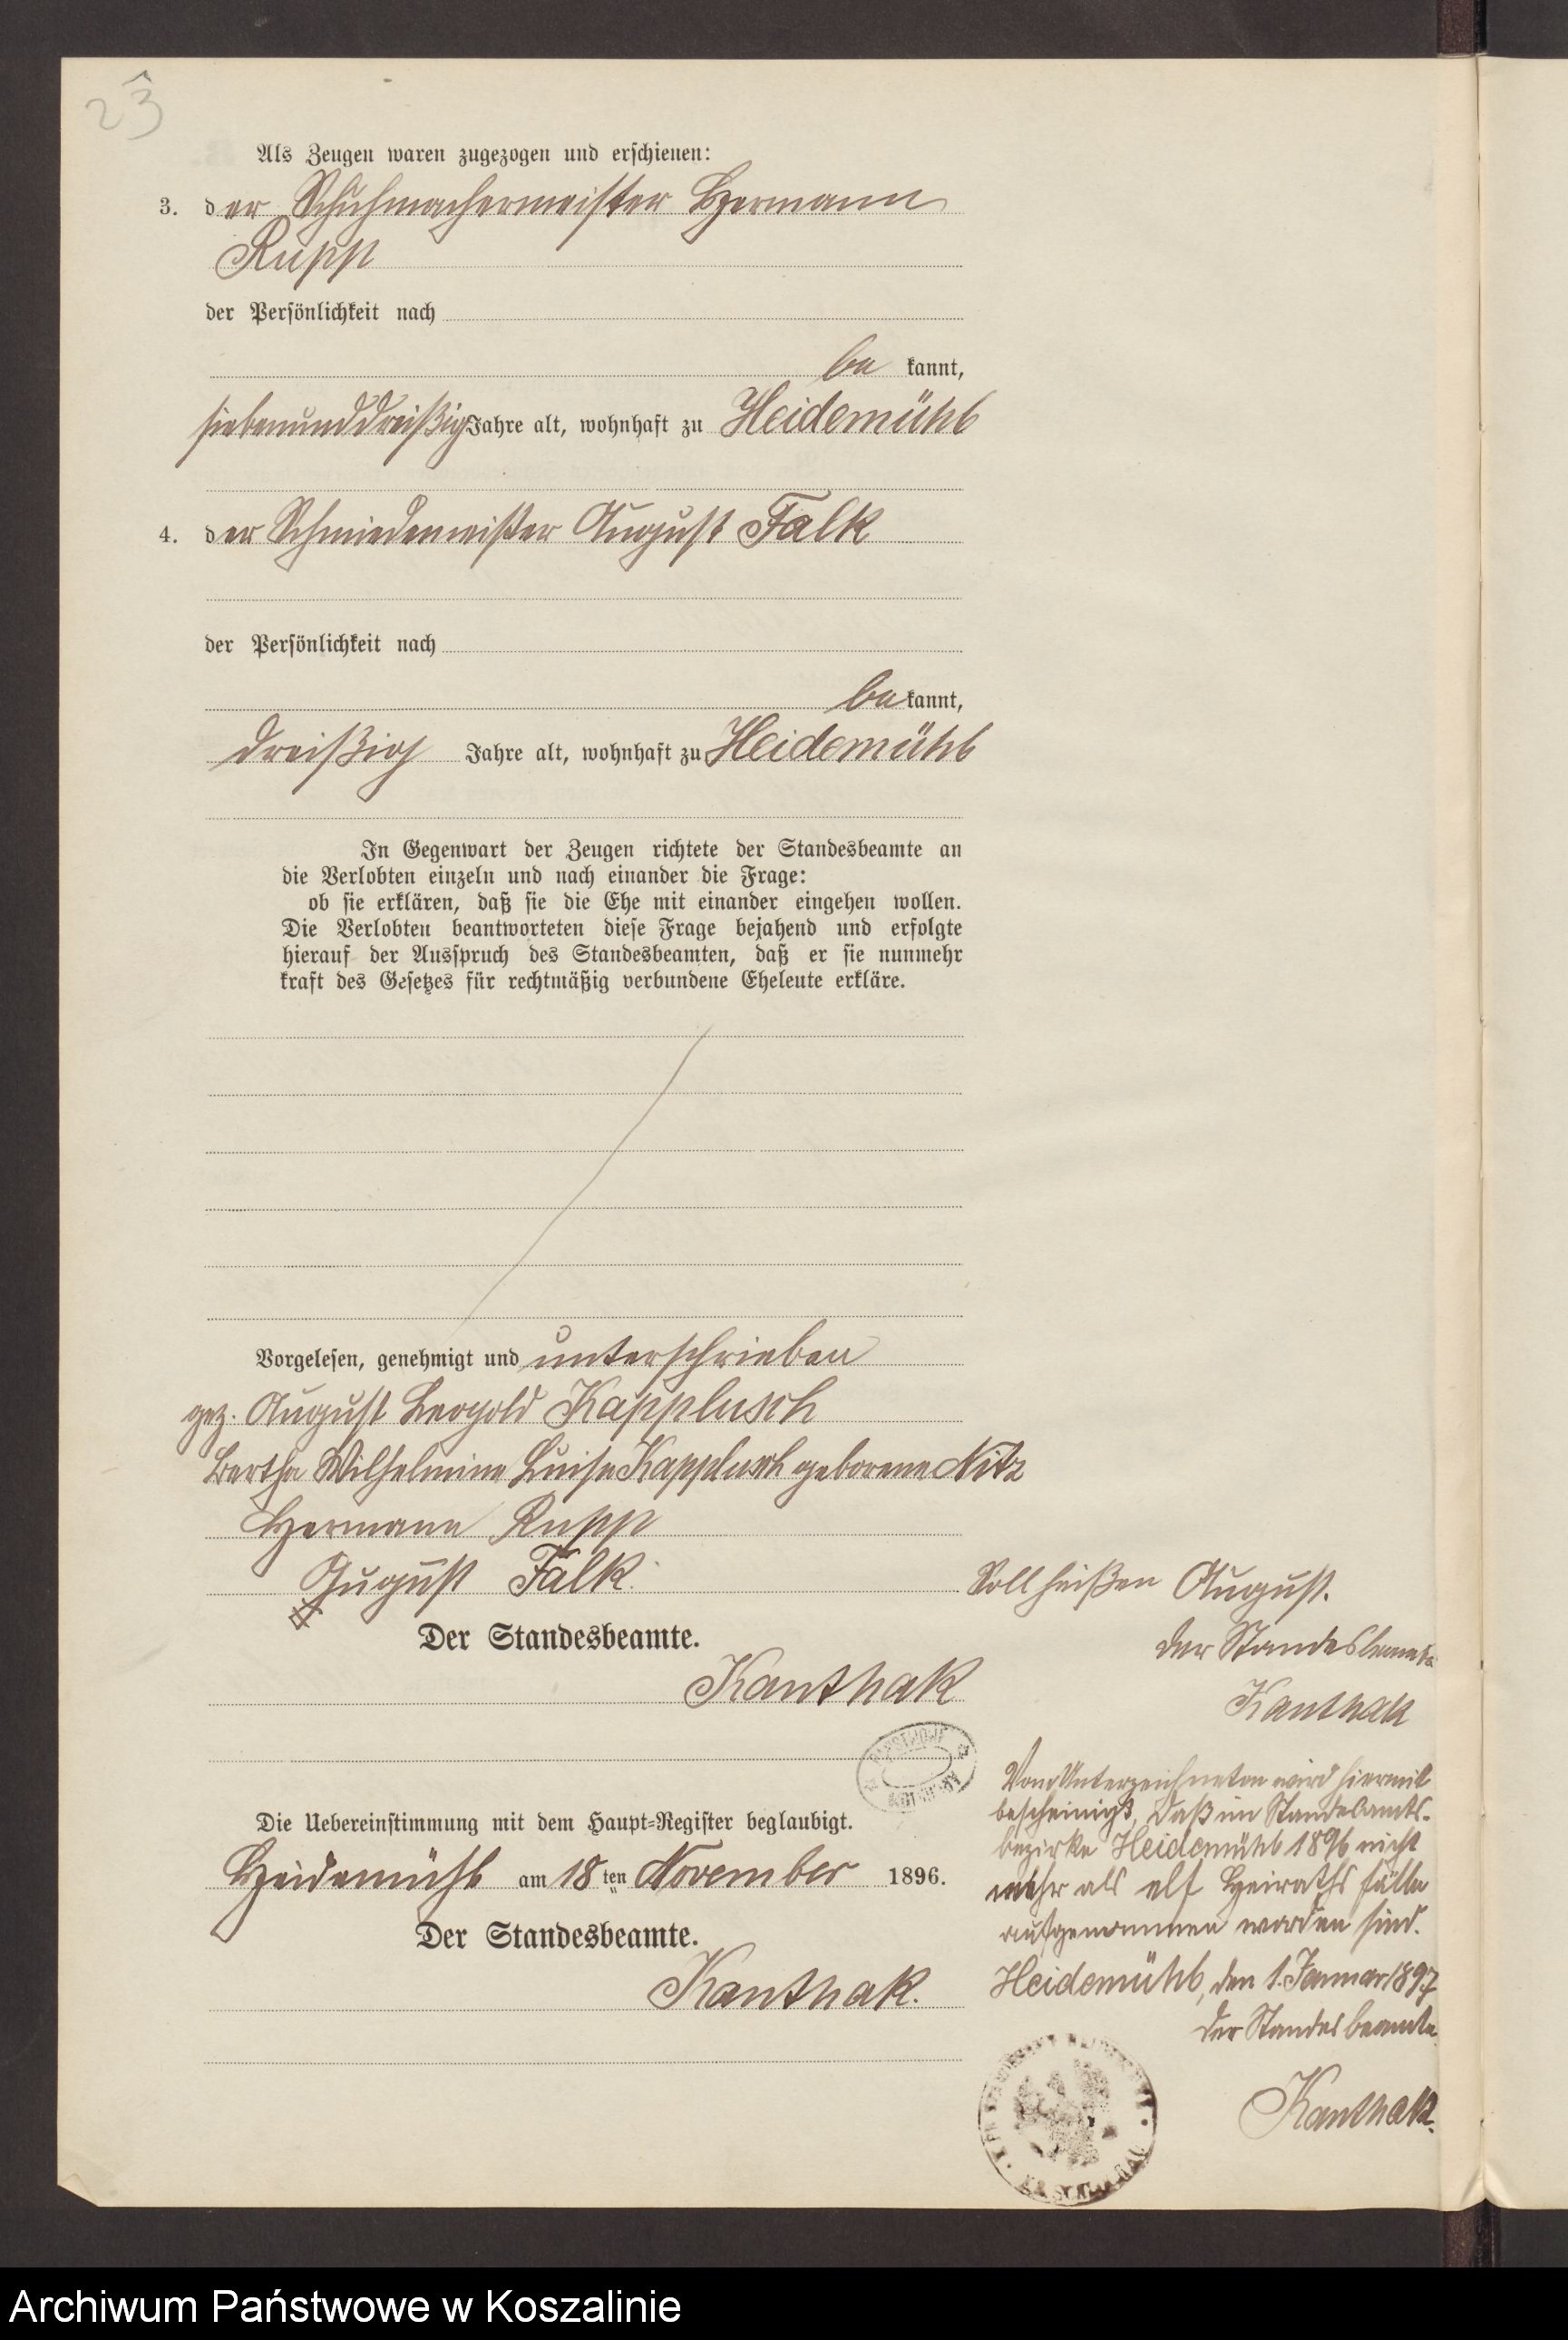 23
Als Zeugen waren zugezogen und erschienen:
3. der Schuhmachermeister Hermann
Rupp
der Persönlichkeit nach
be kannt,
siebenunddreißig Jahre alt, wohnhaft zu Heidemühl
4. der Schmiedemeister August Falk
der Persönlichkeit nach
be kannt,
dreißig Jahre alt, wohnhaft zu Heidemühl
In Gegenwart der Zeugen richtete der Standesbeamte an
die Verlobten einzeln und nach einander die Frage:
ob sie erklären, daß sie die Ehe mit einander eingehen wollen.
Die Verlobten beantworteten diese Frage bejahend und erfolgte
hierauf der Ausspruch des Standesbeamten, daß er sie nunmehr
kraft des Gesetzes für rechtmäßig verbundene Eheleute erkläre.
Vorgelesen, genehmigt und unterschrieben
gez. August Leopold Kapplusch
Bertha Wilhelmine Luise Kapplusch geborene Nitz
Hermann Rupp
August Falk.
Der Standesbeamte.
Kanthak
Die Uebereinstimmung mit dem Haupt-Register beglaubigt.
Heidemühl am 18ten November 1896.
Der Standesbeamte.
Kanthak.
Soll heißen August.
Der Standesbeamte
Kanthak
Vom Unterzeichneten wird hiermit
bescheinigt, daß im Standesamts-
bezirke Heidemühl 1896 nicht
mehr als elf Heirathsfälle
aufgenommen worden sind.
Heidemühl, den 1. Januar 1897
Der Standesbeamte
Kanthak.
Archiwum Państwowe w Koszalinie